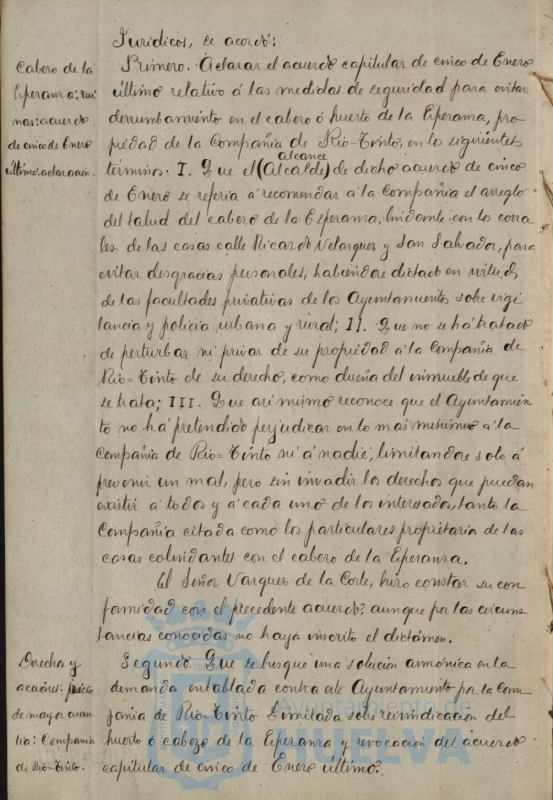 Jurídicos, se acordó:
Cabezo de la
Esperanza: rui
nas: acuerdo
de cinco de Enero
último: aclaración.
Primero. Aclarar el acuerdo capitular de cinco de Enero
último relativo á las medidas de seguridad para evitar
derrumbamiento en el cabezo ó huerto de la Esperanza, pro-
piedad de la Compañía de Rio-Tinto, en los siguientes
términos: I. Que el (Alcalde) alcance de dicho acuerdo de cinco
de Enero se refería á recomendar á la Compañía el arreglo
del talud del cabezo de la Esperanza, lindante con los corra-
les de las casas calle Ricardo Velazquez y San Salvador, para
evitar desgracias personales, habiéndose dictado en virtud
de las facultades privativas de los Ayuntamientos sobre vigi
lancia y policía urbana y rural; II. Que no se há tratado
de perturbar ni privar de su propiedad á la Compañía de
Rio=Tinto de su derecho, como dueña del inmueble de que
se trata; III. Que asi mismo reconoce que el Ayuntamien
to no há pretendido perjudicar en lo mas mínimo á la
Compañía de Rio=Tinto ni á nadie, limitandose solo á
prevenir un mal, pero sin invadir los derechos que puedan
existir á todos y á cada uno de los interesados, tanto la
Compañía citada como los particulares propietarios de las
casas colindantes con el cabezo de la Esperanza.
El Señor Vazquez de la Corte, hizo constar su con
formidad con el precedente acuerdo, aunque por las circuns
tancias conocidas no haya suscrito el dictámen.
Derechos y
acciones: juicio
de mayor cuan
tía: Compañía
de Rio-Tinto.
Segundo. Que se busque una solución armónica en la
demanda entablada contra este Ayuntamiento por la Com-
pañía de Rio=Tinto Limitada sobre reivindicación del
huerto ó cabezo de la Esperanza y revocación del acuerdo
capitular de cinco de Enero último.
Ayuntamiento de
HUELVA